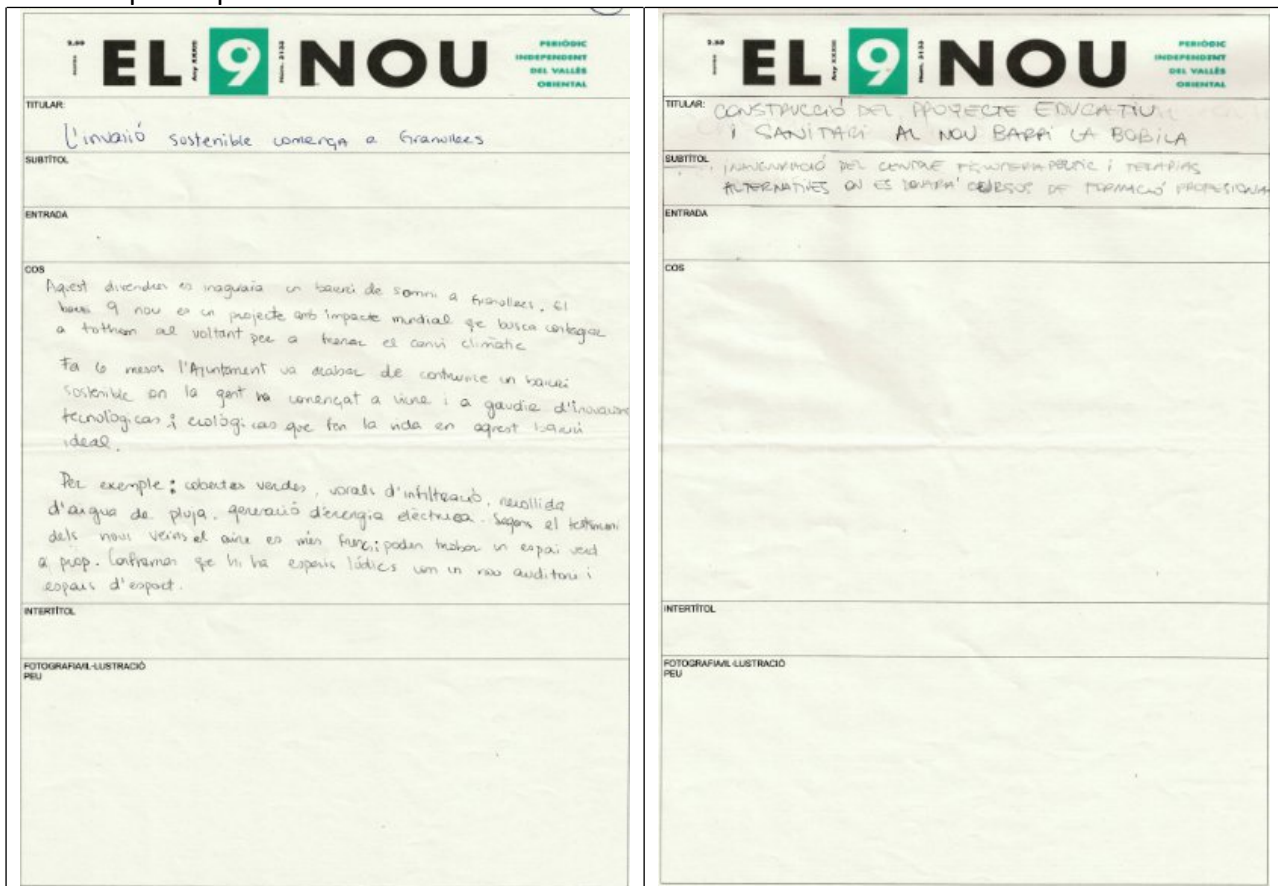 2.50
euros
EL 9 NOU
Any XXXIII
Núm. 3133
PERIÒDIC
INDEPENDENT
DEL VALLÈS
ORIENTAL
TITULAR:
L'invasió sostenible comença a Granollers
SUBTÍTOL
ENTRADA
COS
Aquest divendres es inaguraia un barri de somni a Granollers. El
barri 9 nou es un projecte amb impacte mundial qe busca contagiar
a tothom al voltant per a frenar el canvi climàtic
Fa 6 mesos l'Ajuntament va acabar de contruire un barri
sostenible on la gent ha començat a viure i a gaudir d'inovacions
tecnològicas i ecològicas que fan la vida en aqrest barri
ideal.
Per exemple: cobertes verdes, vorals d'infiltració, recollida
d'aigua de pluja, generació d'energia elèctrica. Segons el testimoni
dels nous veins el aire es més fresc i poden trobar un espai verd
a prop. Confirmen qe hi ha espais lúdics com un nou auditori i
espais d'esport.
INTERTÍTOL
FOTOGRAFIA/IL·LUSTRACIÓ
PEU
2.50
euros
EL 9 NOU
Any XXXIII
Núm. 3133
PERIÒDIC
INDEPENDENT
DEL VALLÈS
ORIENTAL
TITULAR:
CONSTRUCCIÓ DEL PROYECTE EDUCATIU
I SANITARI AL NOU BARRI LA BOBILA
SUBTÍTOL
INAUGURACIÓ DEL CENTRE FISIOTERAPEUTIC I TERAPIAS
ALTERNATIVES ON ES DONARÀ CURSOS DE FORMACIÓ PROFESIONAL
ENTRADA
COS
INTERTÍTOL
FOTOGRAFIA/IL·LUSTRACIÓ
PEU